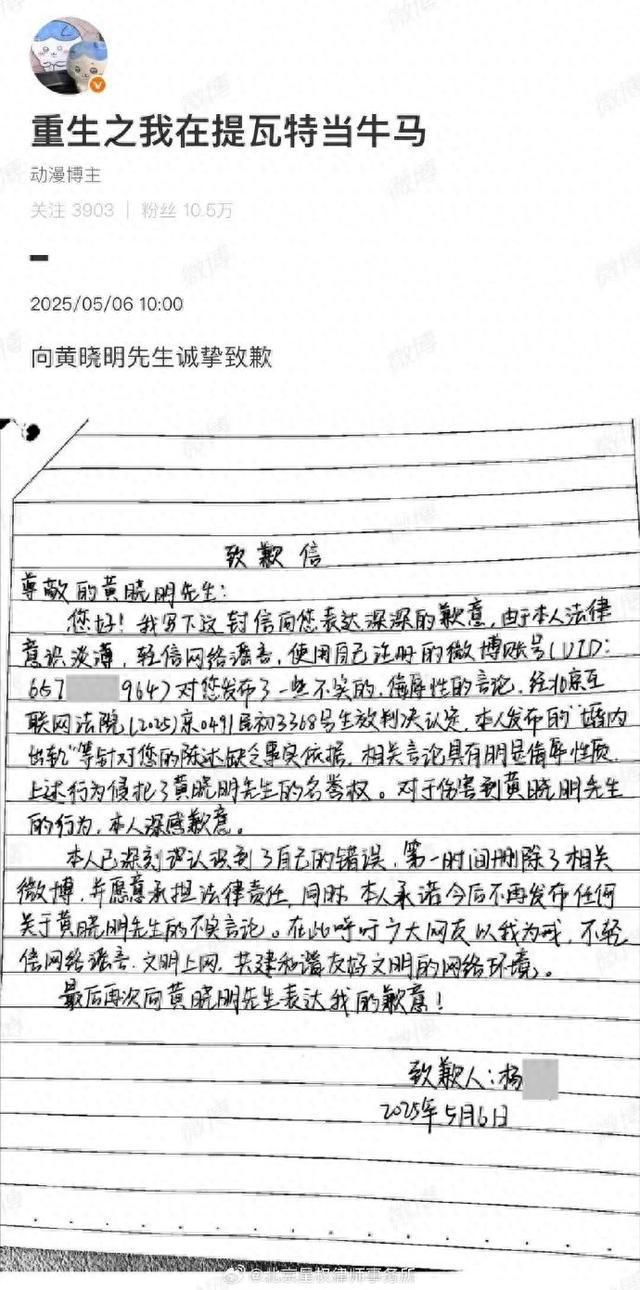 重生之我在提瓦特当牛马
动漫博主
关注 3903 | 粉丝 10.5万
2025/05/06 10:00
向黄晓明先生诚挚致歉
致歉信
尊敬的黄晓明先生：
您好！我写下这封信向您表达深深的歉意，由于本人法律
意识淡薄，轻信网络谣言，使用自己注册的微博账号(UID：
657 964)对您发布了一些不实的、侮辱性的言论，经北京互
联网法院(2025)京0491民初3368号生效判决认定，本人发布的“婚内
出轨”等针对您的陈述缺乏事实依据，相关言论具有明显侮辱性质，
上述行为侵犯了黄晓明先生的名誉权。对于伤害到黄晓明先生
的行为，本人深感歉意。
本人已深刻认识到了自己的错误，第一时间删除了相关
微博，并愿意承担法律责任，同时，本人承诺今后不再发布任何
关于黄晓明先生的不实言论。在此呼吁广大网友以我为戒，不轻
信网络谣言，文明上网，共建和谐友好文明的网络环境。
最后再次向黄晓明先生表达我的歉意！
致歉人：杨
2025年5月6日
@北京星权律师事务所
微博